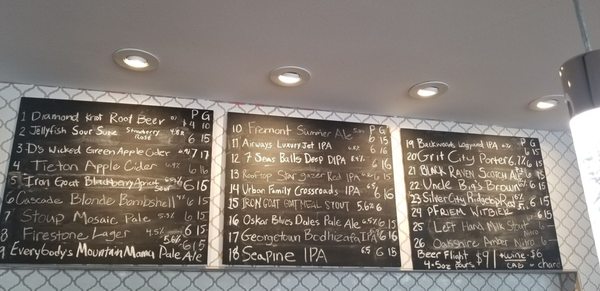 P G
1 Diamond Knot Root Beer 4 10
2 Jellyfish Sour Supe Strawberry Rose 4.8% 6 15
3 D's Wicked Green Apple Cider 7 17
4 Tieton Apple Cider 6 16
5 Iron Goat Blackberry Apricot Sour 6 15
6 Cascade Blonde Bombshell 6 15
7 Stoup Mosaic Pale 5.3% 6 15
8 Firestone Lager 4.5% 6 15
9 EveryBody's Mountain Mama Pale Ale 5.6% 6 15
P G
10 Fremont Summer Ale 6 15
11 Airways Luxury Jet IPA 6 15
12 7 Seas Balls Deep DIPA 6 16
13 Rooftop Star gazer Red IPA 6 15
14 Urban Family Crossroads IPA 6 16
15 IRON GOAT OATMEAL STOUT 5.6% 6
16 Oskar Blues Dales Pale Ale 6.5% 6 15
17 Georgetown Bodhizafa IPA 6 16
18 Seapine IPA 6 15
P G
19 Backwoods IPA 6 15
20 Grit City Porter 6 15
21 BLACK RAVEN SCOTCH ALE 6 15
22 Uncle Big's Brown 6 15
23 Silver City Ridgetop Red 6 15
24 PFRIEM WITBIER 6 15
25 Left Hand Milk Stout Nitro 6
26 Oakshire Amber Nitro 6
Beer Flight $9 wine $6
4-5oz pours CAB - chard